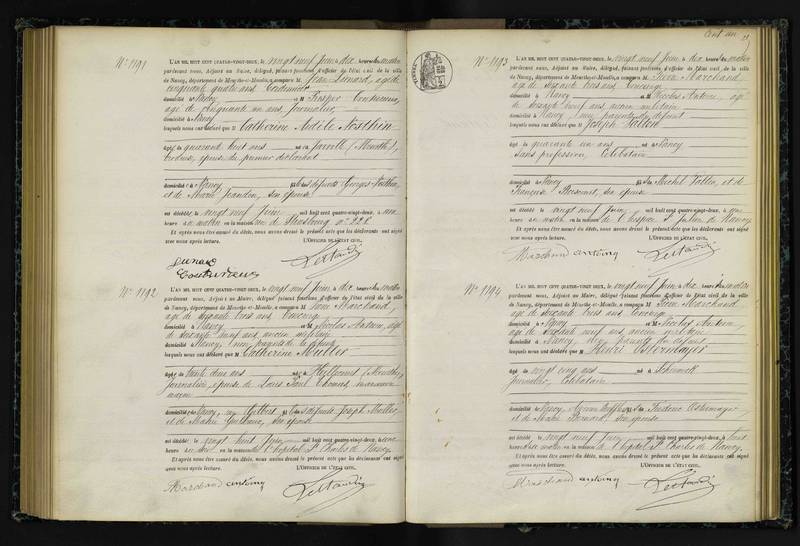 N° 1191
L'AN MIL HUIT CENT QUATRE-VINGT-DEUX, le vingt neuf Juin à dix heures du matin
pardevant nous, Adjoint au Maire, délégué, faisant fonctions d'officier de l'état civil de la ville
de Nancy, département de Meurthe-et-Moselle, a comparu M. Jean Lunard, âgé de
cinquante quatre ans
domicilié à Nancy et M Prosper Couturieux,
âgé de cinquante un ans, Journalier,
domicilié à Nancy
lesquels nous ont déclaré que M Catherine Adèle
âgée de quarante huit ans née à Jarville (Meurthe),
épouse du premier déclarant
domiciliée à Nancy fille des défunts Georges
et de Marie Jeandon, son épouse
est décédée le vingt neuf Juin mil huit cent quatre-vingt-deux, à une
heure du matin en la maison rue de Strasbourg n° 226
Et après nous être assuré du décès, nous avons dressé le présent acte que les déclarants ont signé
avec nous après lecture. L'OFFICIER DE L'ÉTAT CIVIL,
Lunard
Couturieux
N° 1192
L'AN MIL HUIT CENT QUATRE-VINGT-DEUX, le vingt neuf Juin à dix heures du matin
pardevant nous, Adjoint au Maire, délégué, faisant fonctions d'officier de l'état civil de la ville
de Nancy, département de Meurthe-et-Moselle, a comparu M. Jean Marchand,
âgé de soixante trois ans, Concierge
domicilié à Nancy et M Nicolas Antoine, âgé
de soixante neuf ans, ancien militaire
domicilié à Nancy, non parents de la défunte
lesquels nous ont déclaré que M Catherine Muller
âgée de trente deux ans née à (Meurthe)
Journalière, épouse de Louis Paul Thomas,
domiciliée à Nancy, rue Gilbert fille des défunts Joseph Muller,
et de Marie Guillaume, son épouse
est décédée le vingt huit Juin mil huit cent quatre-vingt-deux, à onze
heures du soir en la maison de l'hôpital St Charles de Nancy.
Et après nous être assuré du décès, nous avons dressé le présent acte que les déclarants ont signé
avec nous après lecture. L'OFFICIER DE L'ÉTAT CIVIL,
Marchand antoine
Cent un
N° 1193
L'AN MIL HUIT CENT QUATRE-VINGT-DEUX, le vingt neuf Juin à dix heures du matin
pardevant nous, Adjoint au Maire, délégué, faisant fonctions d'officier de l'état civil de la ville
de Nancy, département de Meurthe-et-Moselle, a comparu M. Jean Marchand
âgé de soixante trois ans, Concierge
domicilié à Nancy et M Nicolas Antoine, âgé
de soixante neuf ans, ancien militaire
domicilié à Nancy, non parents du défunt
lesquels nous ont déclaré que M Joseph
âgé de quarante un ans né à Nancy
sans profession, Célibataire
domicilié à Nancy fils de Michel et de
Françoise son épouse
est décédé le vingt neuf Juin mil huit cent quatre-vingt-deux, à
heure du matin en la maison de l'hospice St Julien de Nancy
Et après nous être assuré du décès, nous avons dressé le présent acte que les déclarants ont signé
avec nous après lecture. L'OFFICIER DE L'ÉTAT CIVIL,
Marchand antoine
N° 1194
L'AN MIL HUIT CENT QUATRE-VINGT-DEUX, le vingt neuf Juin à dix heures du matin
pardevant nous, Adjoint au Maire, délégué, faisant fonctions d'officier de l'état civil de la ville
de Nancy, département de Meurthe-et-Moselle, a comparu M. Jean Marchand
âgé de soixante trois ans, Concierge
domicilié à Nancy et M Nicolas Antoine,
âgé de soixante neuf ans, ancien militaire
domicilié à Nancy, non parents du défunt
lesquels nous ont déclaré que M Henri Ostermayer
âgé de vingt cinq ans né à
Journalier, Célibataire
domicilié à Nancy fils de Frédéric Ostermayer
et de Marie Bernard, son épouse
est décédé le vingt neuf Juin mil huit cent quatre-vingt-deux, à huit
heures du matin en la maison de l'hôpital St Charles de Nancy.
Et après nous être assuré du décès, nous avons dressé le présent acte que les déclarants ont signé
avec nous après lecture. L'OFFICIER DE L'ÉTAT CIVIL,
Marchand antoine